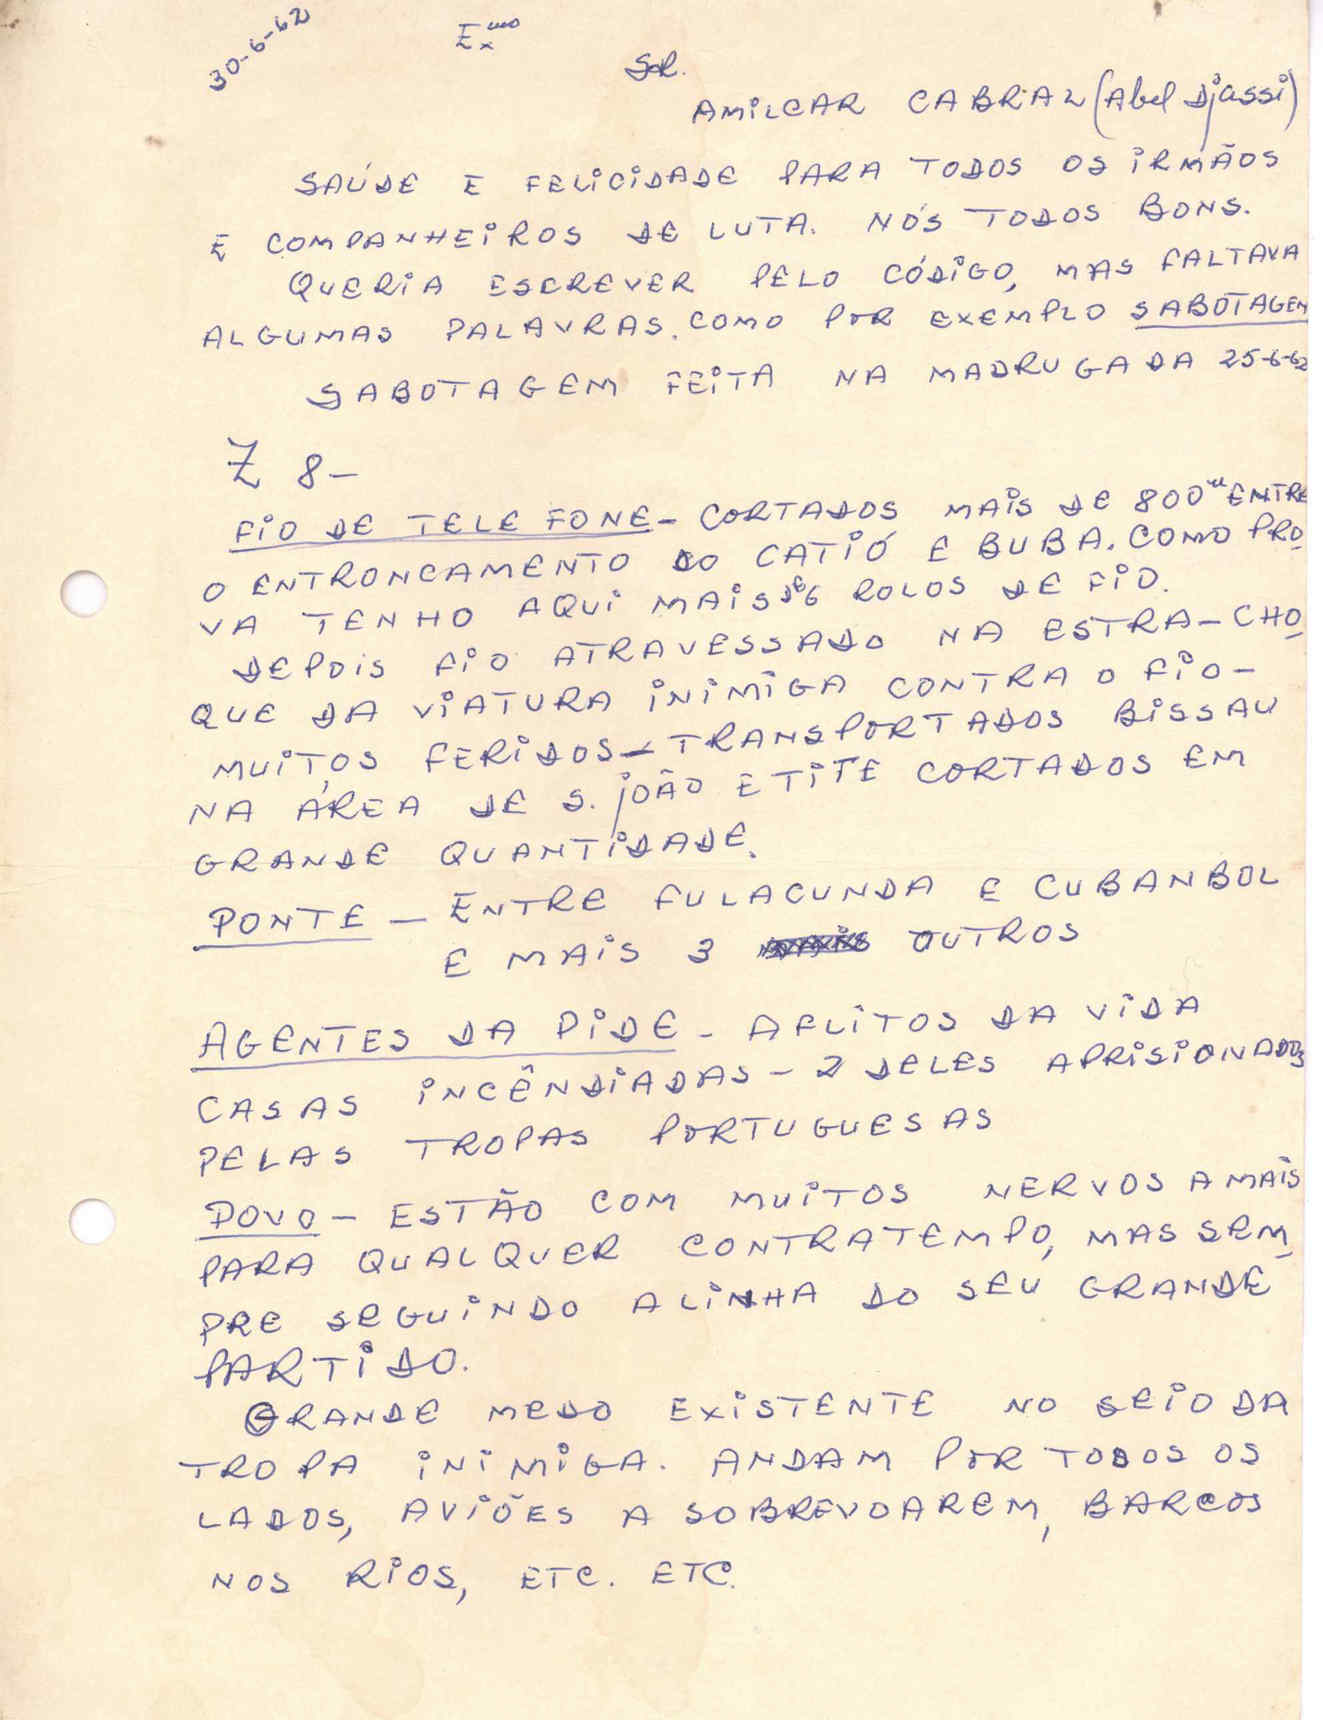 30-6-62
Exmo
Snr.
AMILCAR CABRAL (Abel Djassi)
SAÚDE E FELICIDADE PARA TODOS OS IRMÃOS
E COMPANHEIROS DE LUTA. NÓS TODOS BONS.
QUERIA ESCREVER PELO CÓDIGO, MAS FALTAVA
ALGUMAS PALAVRAS. COMO POR EXEMPLO SABOTAGEM
SABOTAGEM FEITA NA MADRUGADA 25-6-62
Z 8-
FIO DE TELEFONE - CORTADOS MAIS DE 800m ENTRE
O ENTRONCAMENTO DO CATIÓ E BUBA. COMO PRO
VA TENHO AQUI MAIS DE 6 ROLOS DE FIO.
DEPOIS FIO ATRAVESSADO NA ESTRA - CHO
QUE DA VIATURA INIMIGA CONTRA O FIO -
MUITOS FERIDOS - TRANSPORTADOS BISSAU
NA ÁREA DE S. JOÃO E TITE CORTADOS EM
GRANDE QUANTIDADE.
PONTE - ENTRE FULACUNDA E CUBANBOL
E MAIS 3 OUTROS
AGENTES DA PIDE - AFLITOS DA VIDA
CASAS INCÊNDIADAS - 2 DELES APRISIONADOS
PELAS TROPAS PORTUGUESAS
POVO - ESTÃO COM MUITOS NERVOS A MAIS
PARA QUALQUER CONTRATEMPO, MAS SEM
PRE SEGUINDO A LINHA DO SEU GRANDE
PARTIDO.
GRANDE MEDO EXISTENTE NO SEIO DA
TROPA INIMIGA. ANDAM POR TODOS OS
LADOS, AVIÕES A SOBREVOAREM, BARCOS
NOS RIOS, ETC. ETC.